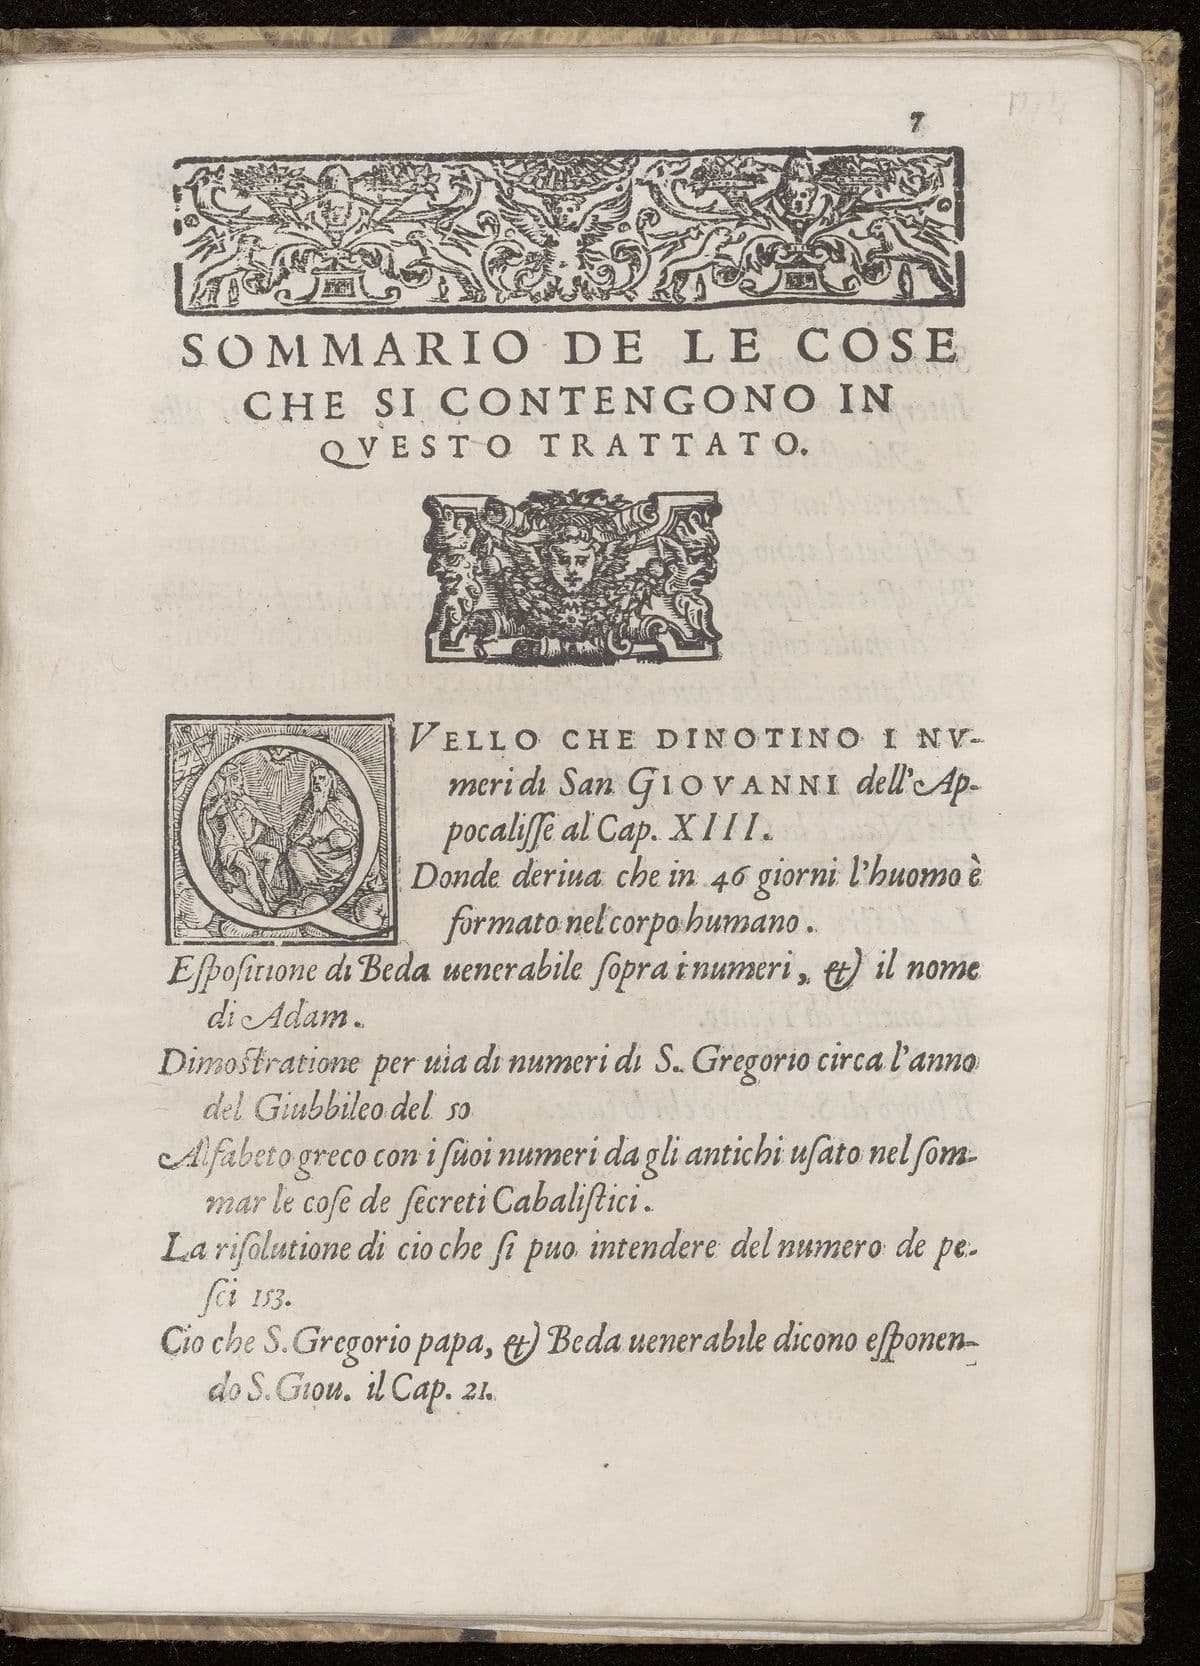 7
SOMMARIO DE LE COSE
CHE SI CONTENGONO IN
QVESTO TRATTATO.
QVELLO CHE DINOTINO I NV-
meri di San GIOVANNI dell'Ap-
pocalisse al Cap. XIII.
Donde deriua che in 46 giorni l'huomo è
formato nel corpo humano.
Espositione di Beda uenerabile sopra i numeri, & il nome
di Adam.
Dimostratione per uia di numeri di S. Gregorio circa l'anno
del Giubbileo del 50
Alfabeto greco con i suoi numeri da gli antichi usato nel som-
mar le cose de secreti Cabalistici.
La risolutione di cio che si puo intendere del numero de pe-
sci 153.
Cio che S. Gregorio papa, & Beda uenerabile dicono esponen-
do S. Giou. il Cap. 21.